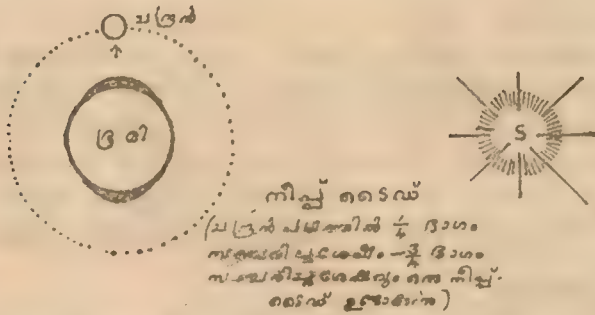 ചന്ദ്രൻ
ഭൂമി
S
നീപ്പ് ടൈഡ്
(ചന്ദ്രൻ പഥത്തിൽ ¼ ഭാഗം
സഞ്ചരിച്ചശേഷം - ¾ ഭാഗം
സഞ്ചരിച്ചശേഷവും ഒരു നീപ്പ്-
ടൈഡ് ഉണ്ടാകുന്നു)